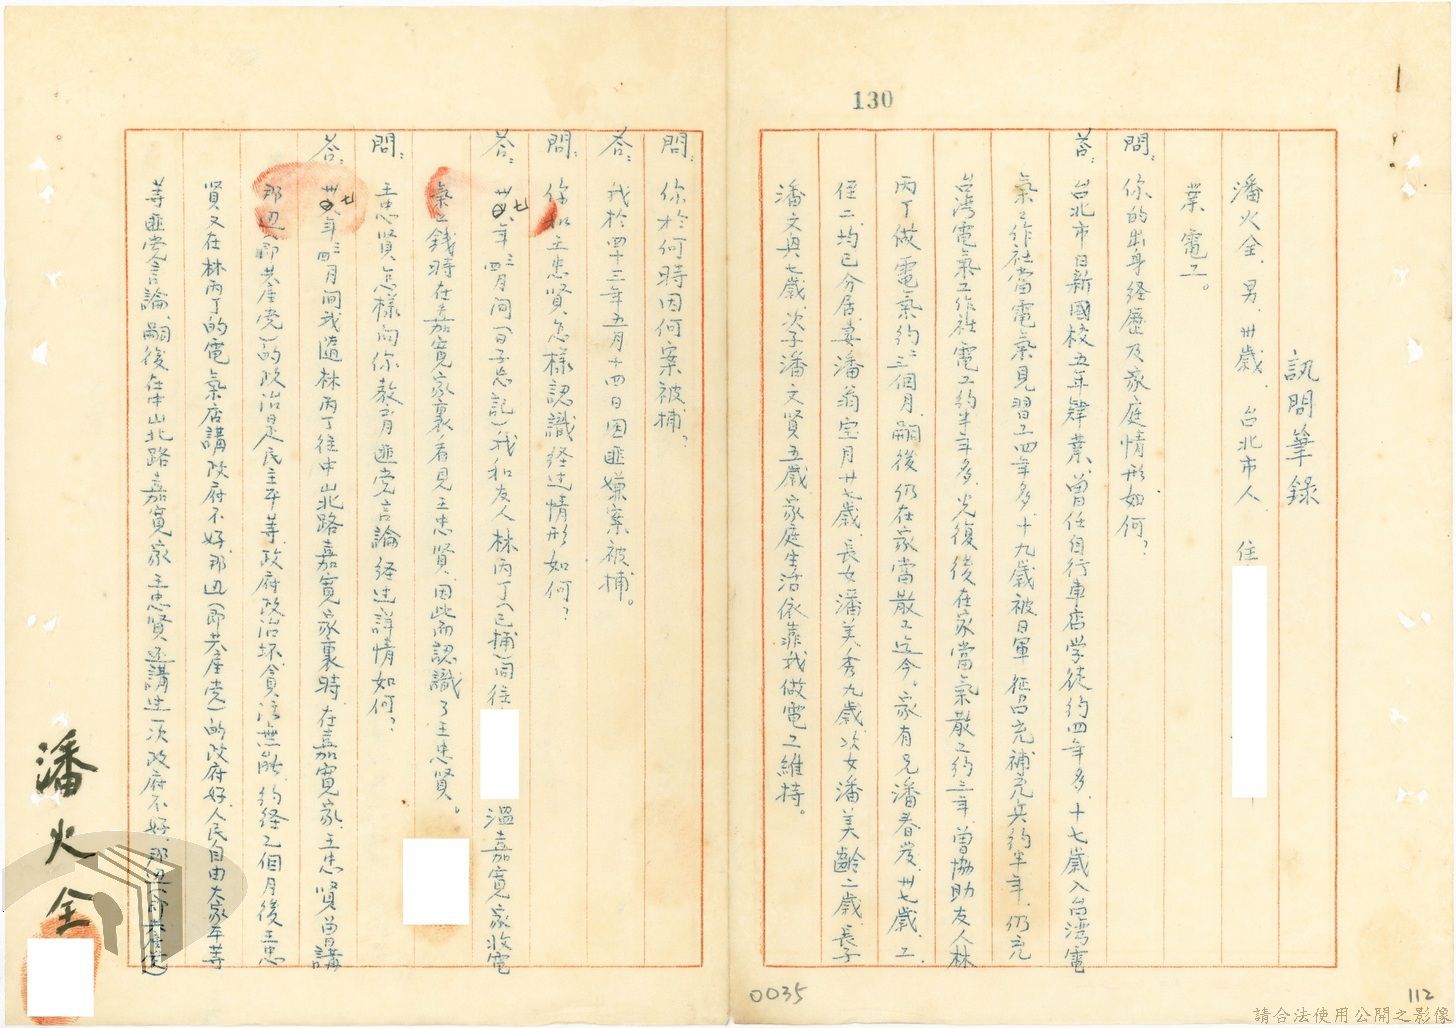 130
訊問筆錄
潘火全、男、卅歲、台北市人、住
業電工。
問：你的出身経歷及家庭情形如何？
答：台北市日新國校五年肄業、曾任自行車店学徒約四年多、十七歲入台湾電
氣工作社當電氣見習工四年多、十九歲被日軍征召充補充兵約半年、仍充
台湾電氣工作社電工約半年多、光復後在家當氣散工約三年、曾協助友人林
丙丁做電氣約二三個月、嗣後仍在家當散工迄今。家有兄潘春發、卅七歲、工、
侄二、均已分居、妻潘翁宝月廿七歲、長女潘美秀九歲、次女潘美齡二歲、長子
潘文典七歲、次子潘文賢五歲、家庭生活依靠我做電工維持。
問：你於何時因何案被捕？
答：我於四十三年五月十四日因匪嫌案被捕。
問：你和王忠賢怎樣認識経过情形如何？
答：卅七年三四月间（日子忘記）我和友人林丙丁（已捕）同往
溫嘉寬家收電
氣工錢時在嘉寬家裏看見王忠賢、因此而認識了王忠賢。
問：王忠賢怎樣向你教育匪党言論経过詳情如何？
答：卅七年三四月间我隨林丙丁往中山北路嘉寬家裏時、在嘉寬家、王忠賢曾講
那边（即共産党）的政治是民主平等、政府政治坏、貪污無能、約経乙個月後王忠
賢又在林丙丁的電氣店講政府不好、那边（即共産党）的政府好、人民自由大家平等
等匪党言論、嗣後在中山北路嘉寬家王忠賢还講过一次政府不好、那边（即共産党）
潘火全
0035
112
請合法使用公開之影像